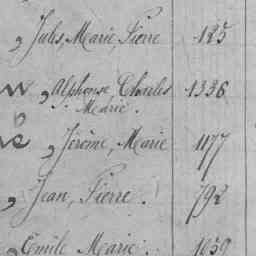 , Jules, Marie Pierre 185
, Alphonse, Charles 1336
Marie.
, Jérôme, Marie 1177
, Jean, Pierre. 792
, Emile Marie. 1039